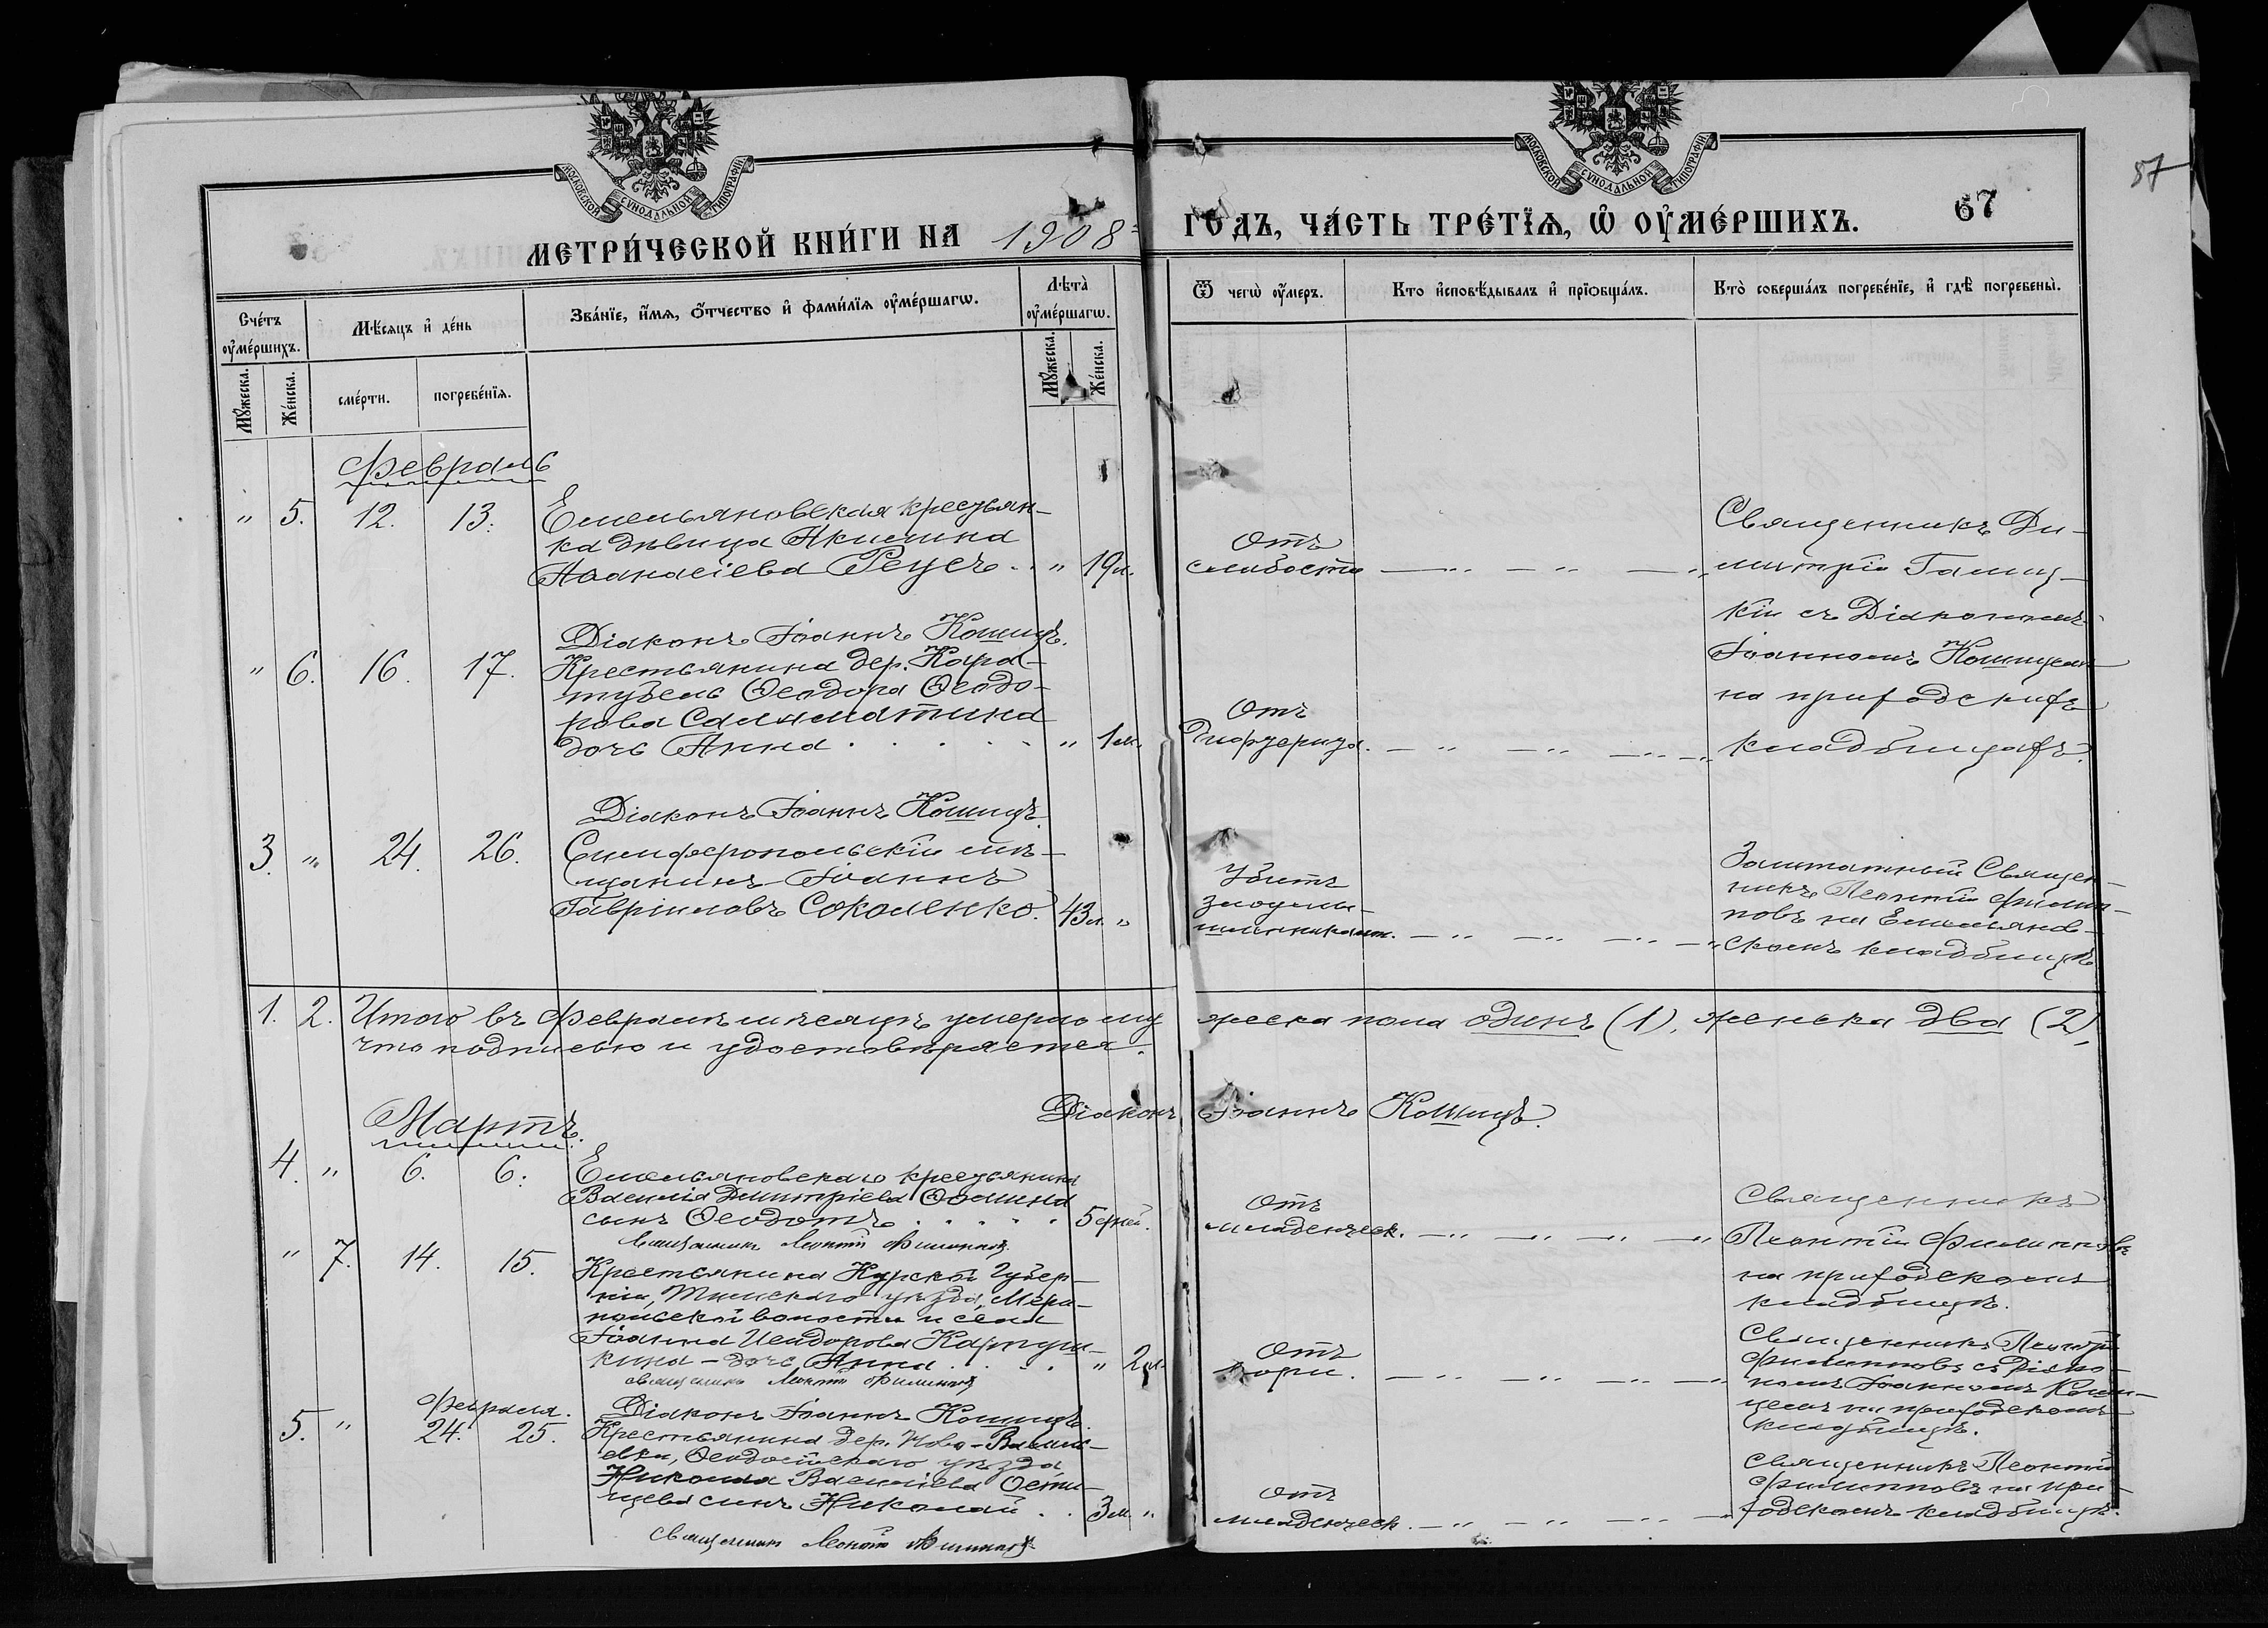 МОСКОВСКОЙ СѴНОДАЛЬНОЙ ТИПОГРАФІИ
МОСКОВСКОЙ СѴНОДАЛЬНОЙ ТИПОГРАФІИ
87
МЕТРИ́ЧЕСКОЙ КНИ́ГИ НА 1908 ГО́ДЪ, ЧА́СТЬ ТРЕ́ТЇѦ, Ѡ҆ ОУ҆МЕ́РШИХЪ. 67
Сче́тъ оу҆ме́ршихъ.
Мꙋ́жеска. Же́нска.
Мѣ́сѧцъ и҆ де́нь
сме́рти. погребе́нїѧ.
Зва́нїе, и҆́мѧ, ѻ҆́тчество и҆ фами́лїѧ оу҆ме́ршагѡ.
Лѣта̀ оу҆ме́ршагѡ.
Мꙋ́жеска. Же́нска.
Ѿ чегѡ̀ оу҆́меръ.
Кто̀ и҆сповѣ́дывалъ и҆ прїѡбща́лъ.
Кто̀ соверша́лъ погребе́нїе, и҆ гдѣ̀ погребены̀.
Февраль
" 5. 12. 13. Емельяновская крестьян-
ка дѣвица Акилина
Аѳанасіева Рецъ . . " 19 л.
Отъ
слабости
Священникъ Ди-
митрій Галиц-
кій съ Діакономъ
Іоанномъ Кошицемъ
на приходскихъ
кладбищахъ.
Діаконъ Іоаннъ Кошицъ.
" 6. 16. 17. Крестьянина дер. Кара-
тубель Ѳеодора Ѳеодо-
рова Саламатина
дочь Анна . . . . . " 1 м.
Отъ
Дифтерита.
Діаконъ Іоаннъ Кошицъ.
3. " 24. 26. Симферопольскій мѣ-
щанинъ Іоаннъ
Гавріиловъ Соколенко. 43 л. "
Убитъ
злоумы-
шленникомъ.
Заштатный Священ-
никъ Леонтій Филип-
повъ на Емельянов-
скомъ кладбищѣ
1. 2. Итого въ Февралѣ мѣсяцѣ умерло му жеска пола одинъ (1), женска два (2),
что подписью и удостовѣряется.
Діаконъ Іоаннъ Кошицъ.
Мартъ.
4. " 6. 6. Емельяновскаго крестьянина
Василія Димитріева Ѳомина
сынъ Ѳеодотъ . . . . . 5 дней.
Отъ
младенческ.
Священникъ
Леонтій Филипповъ
на приходскомъ
кладбищѣ.
Священникъ Леонтій Филипповъ
" 7. 14. 15. Крестьянина Курской Губер-
ніи, Тимскаго уѣзда,
волости и села
Іоанна Исидорова Картуш-
кина - дочь Анна . . . . " 2
Отъ
кори.
Священникъ Леонтій
Филипповъ съ Діако-
номъ Іоанномъ Коши-
цемъ на приходскомъ
кладбищѣ.
священникъ Леонтій Филипповъ
Діаконъ Іоаннъ Кошицъ.
Февраля.
5. " 24. 25. Крестьянина дер. Ново-Василь-
евки, Ѳеодосійскаго уѣзда
Николая Василіева
сынъ Николай . . 3 м. "
Отъ
младенческ.
Священникъ Леонтій
Филипповъ на при-
ходскомъ кладбищѣ.
Священникъ Леонтій Филипповъ